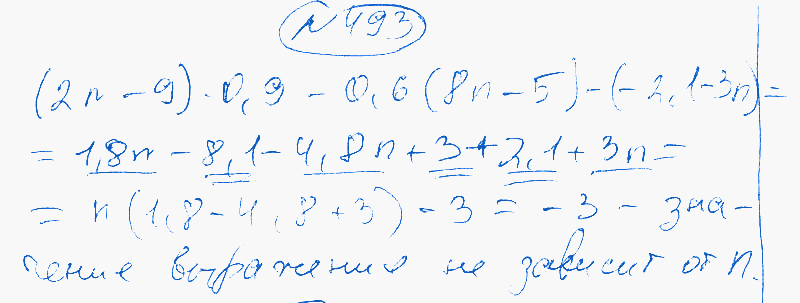 № 493
(2n - 9) · 0,9 - 0,6 (8n - 5) - (-2,1-3n) =
= 1,8n - 8,1 - 4,8n + 3 + 2,1 + 3n =
= n (1,8 - 4,8 + 3) - 3 = -3 - зна-
чение выражения не зависит от n.